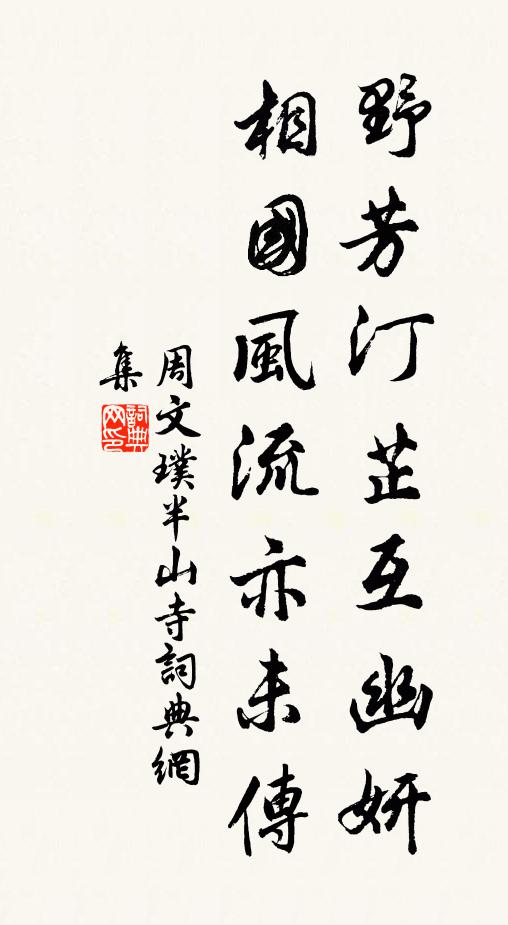 野芳汀芷互幽妍
相國風流亦未傳
周文璞半山寺詞典網
集
詞典网印